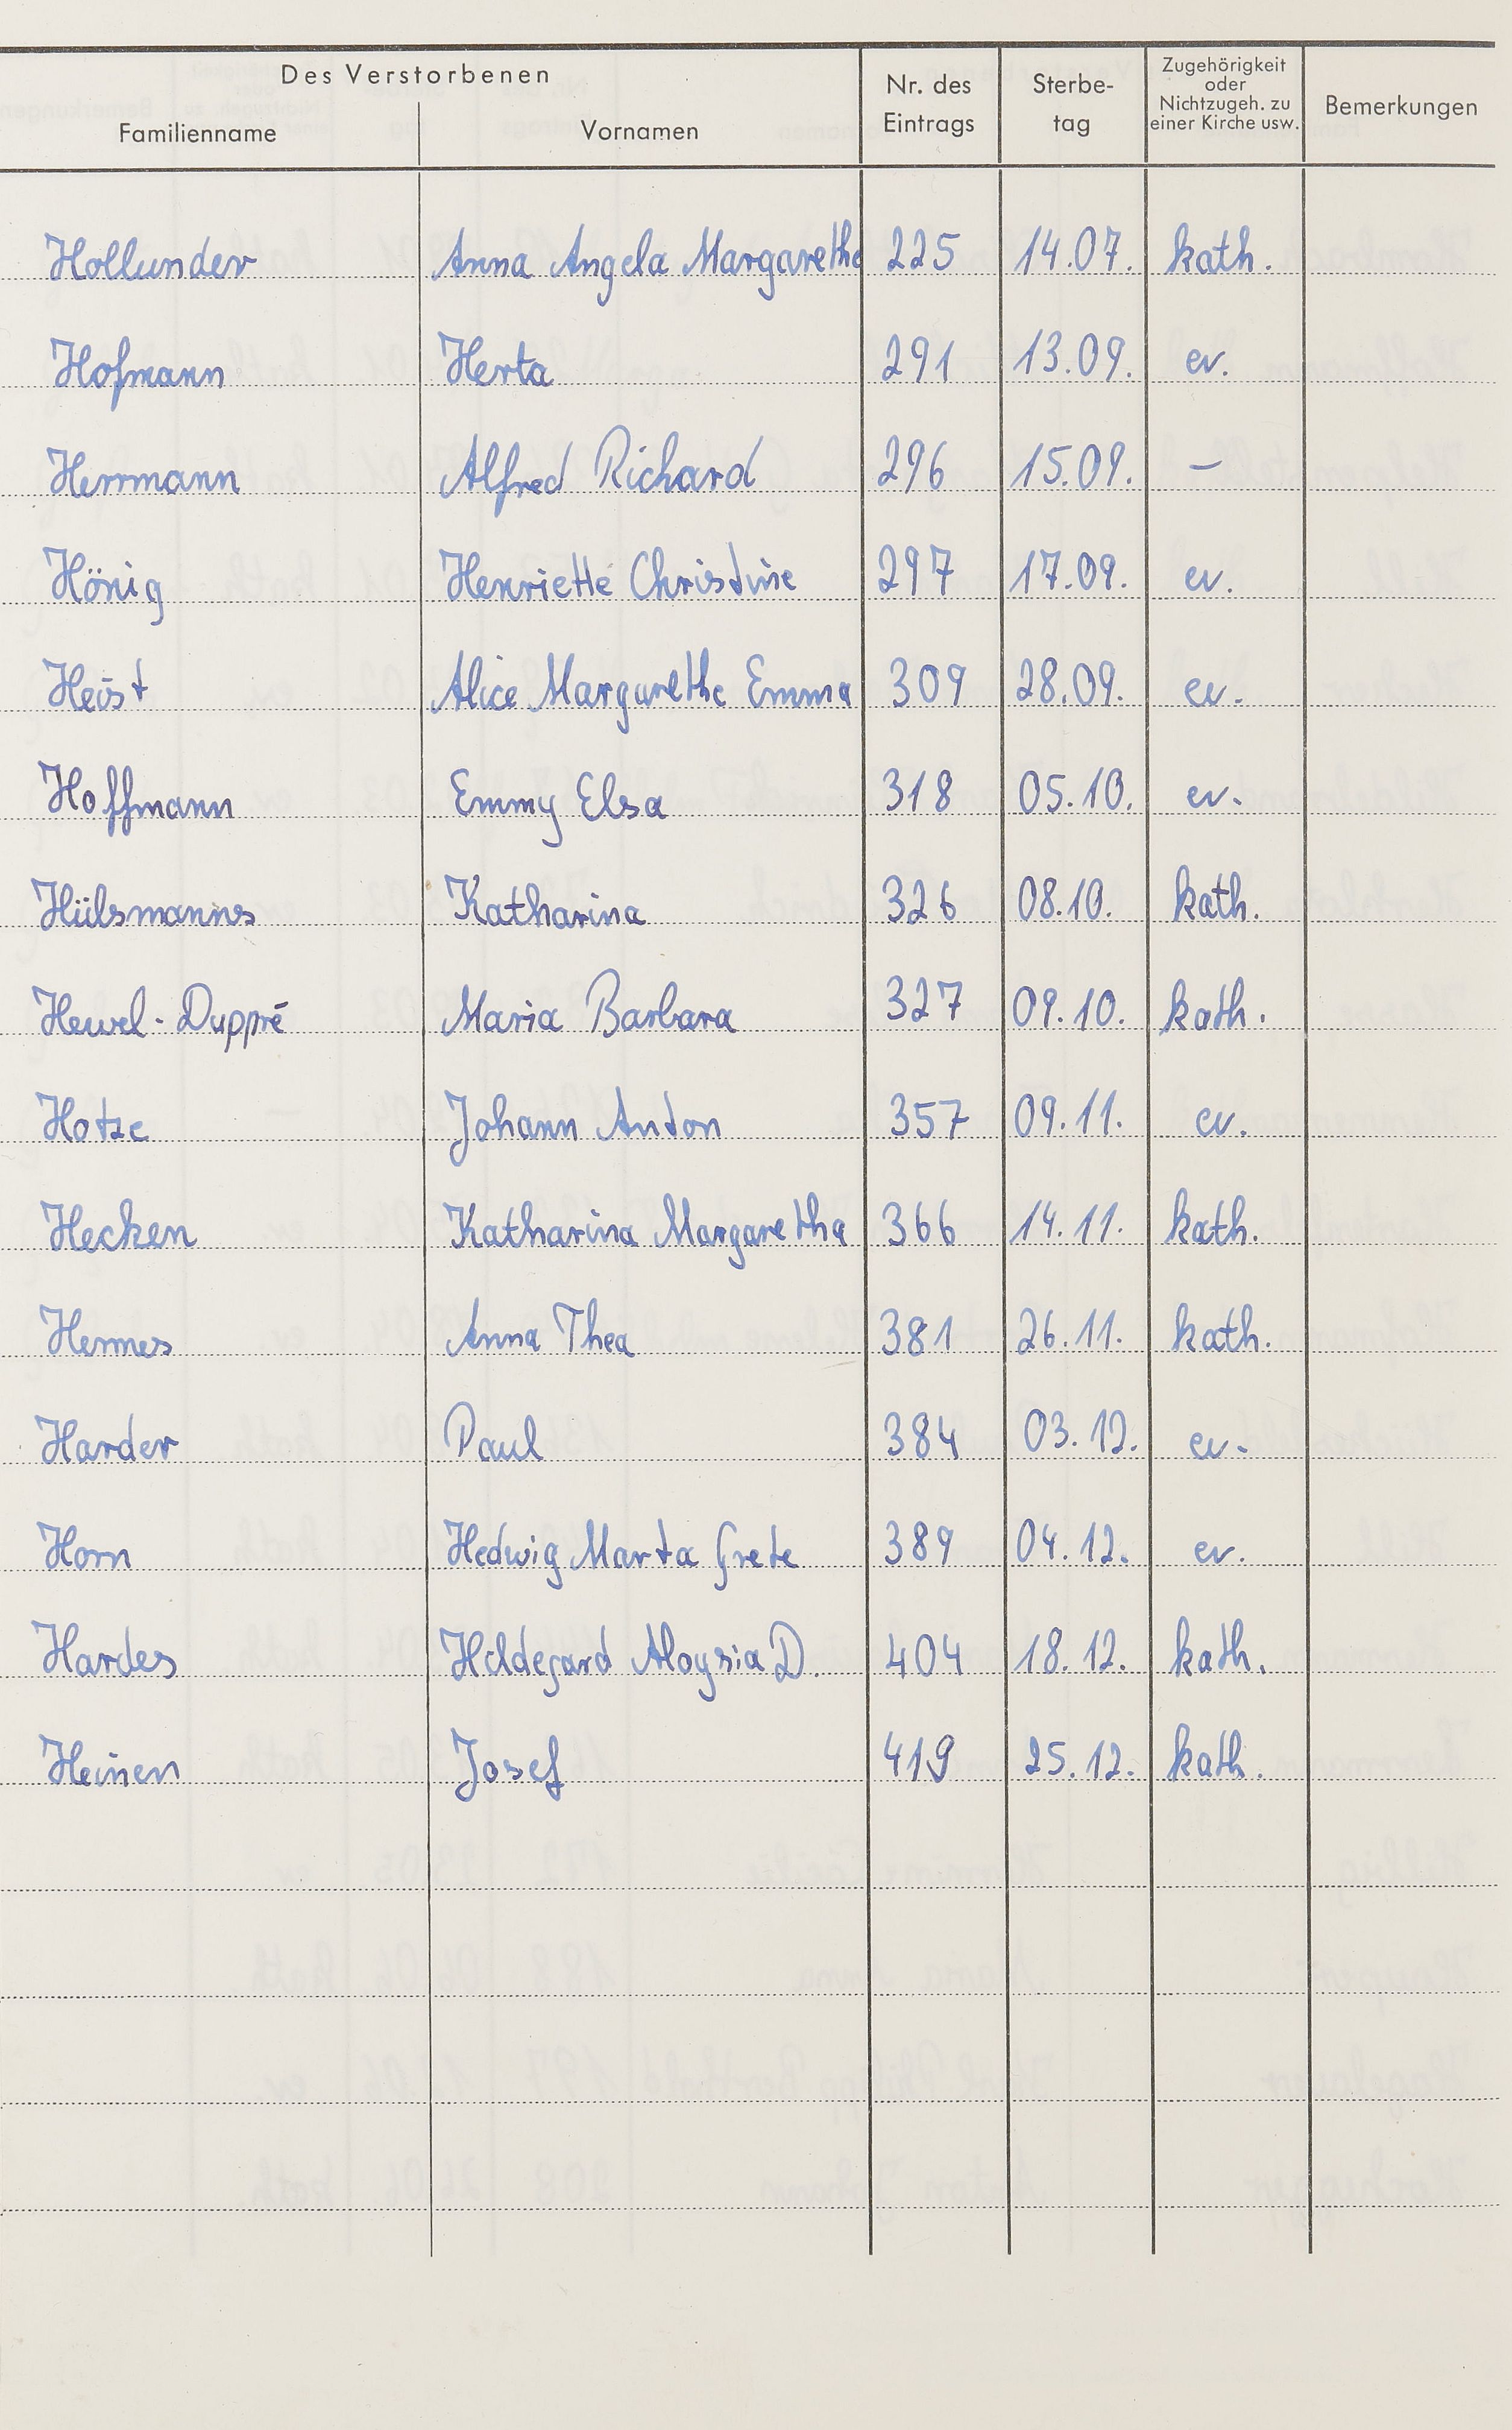 Des Verstorbenen
Familienname Vornamen Nr. des Eintrags Sterbe-tag Zugehörigkeit oder Nichtzugeh. zu einer Kirche usw. Bemerkungen
Hollunder Anna Angela Margaretha 225 14.07. kath.
Hofmann Herta 291 13.09. ev.
Herrmann Alfred Richard 296 15.09. —
Hönig Henriette Christine 297 17.09. ev.
Heist Alice Margarethe Emma 309 28.09. ev.
Hoffmann Emmy Elsa 318 05.10. ev.
Hülsmanns Katharina 326 08.10. kath.
Hewel-Duppré Maria Barbara 327 09.10. kath.
Hotze Johann Anton 357 09.11. ev.
Hecken Katharina Margaretha 366 14.11. kath.
Hermes Anna Thea 381 26.11. kath.
Harder Paul 384 03.12. ev.
Horn Hedwig Marta Grete 389 04.12. ev.
Hardes Hildegard Aloysia D. 404 18.12. kath.
Heinen Josef 419 25.12. kath.